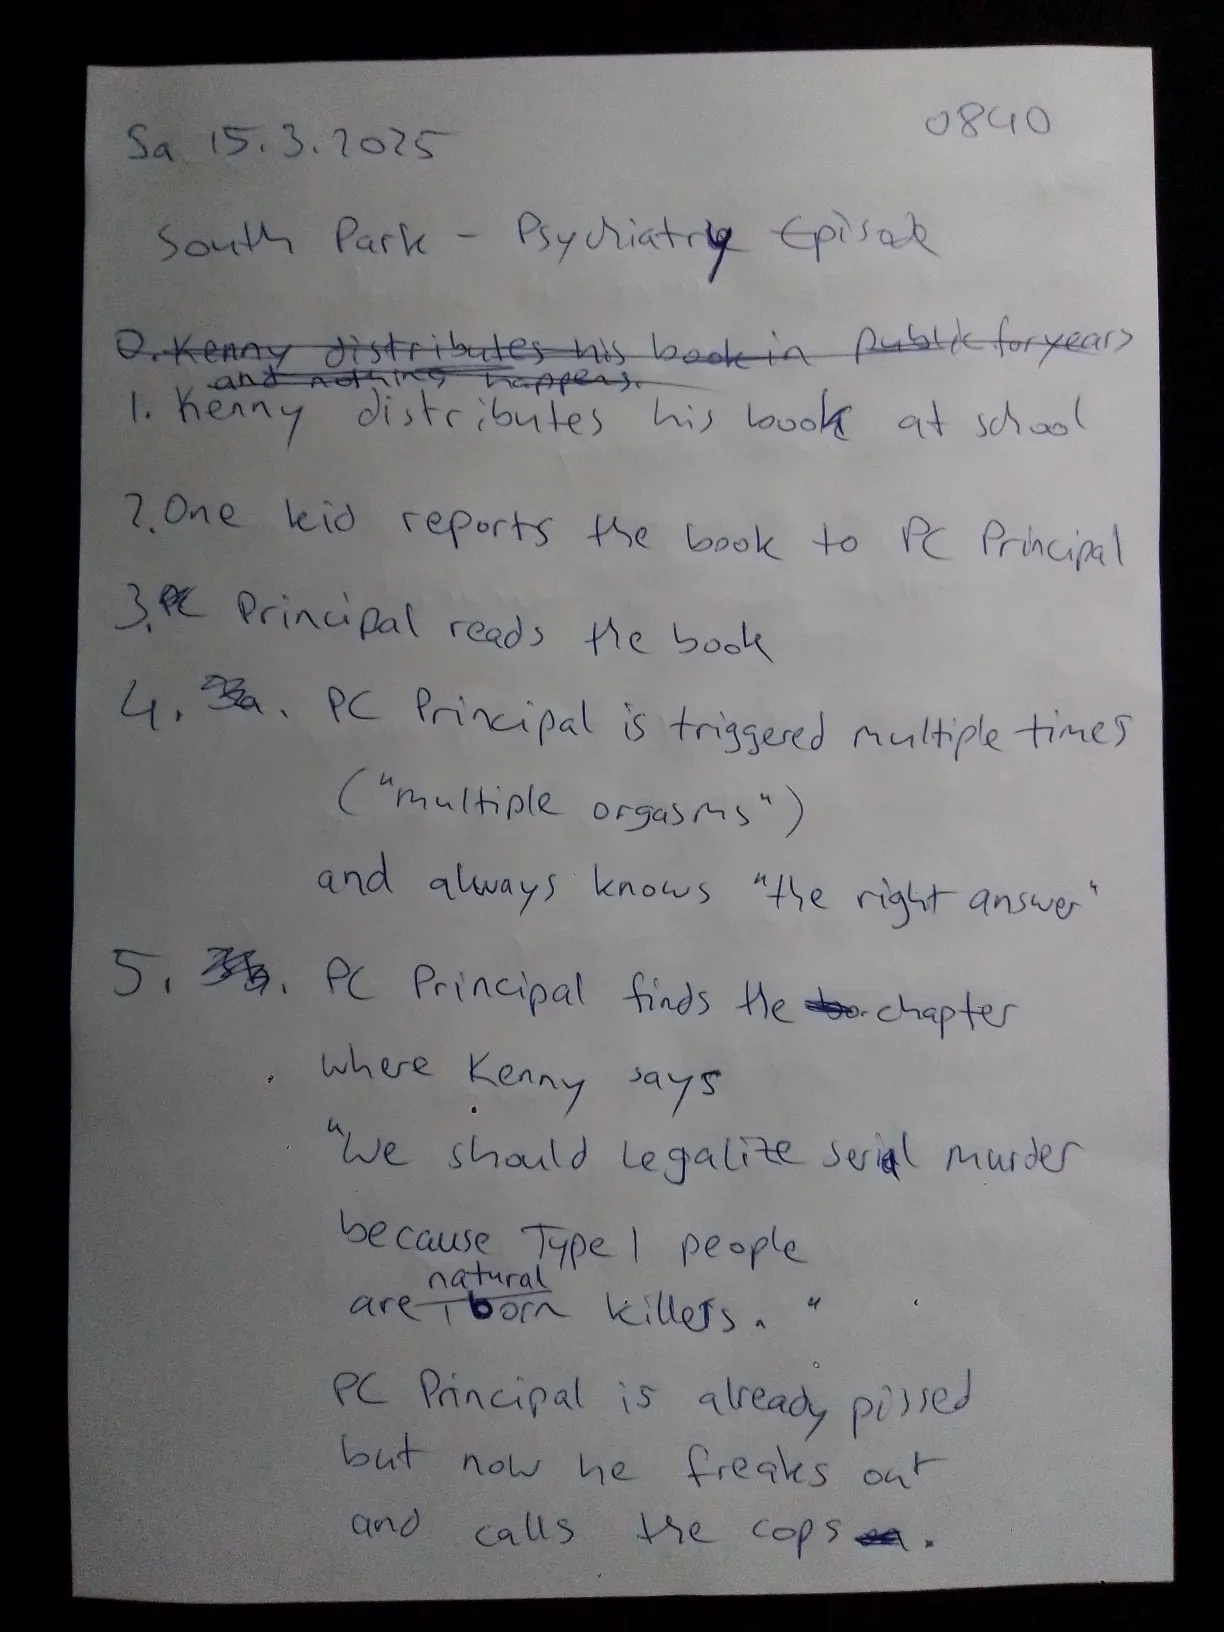 Sa 15.3.2025 0840
South Park - Psychiatry Episode
0. Kenny distributes his book in public for years
and nothing happens.
1. Kenny distributes his book at school
2. One kid reports the book to PC Principal
3. PC Principal reads the book
4. 3a. PC Principal is triggered multiple times
("multiple orgasms")
and always knows "the right answer"
5. PC Principal finds the chapter
where Kenny says
"We should legalize serial murder
because Type 1 people
natural
are born killers."
PC Principal is already pissed
but now he freaks out
and calls the cops.